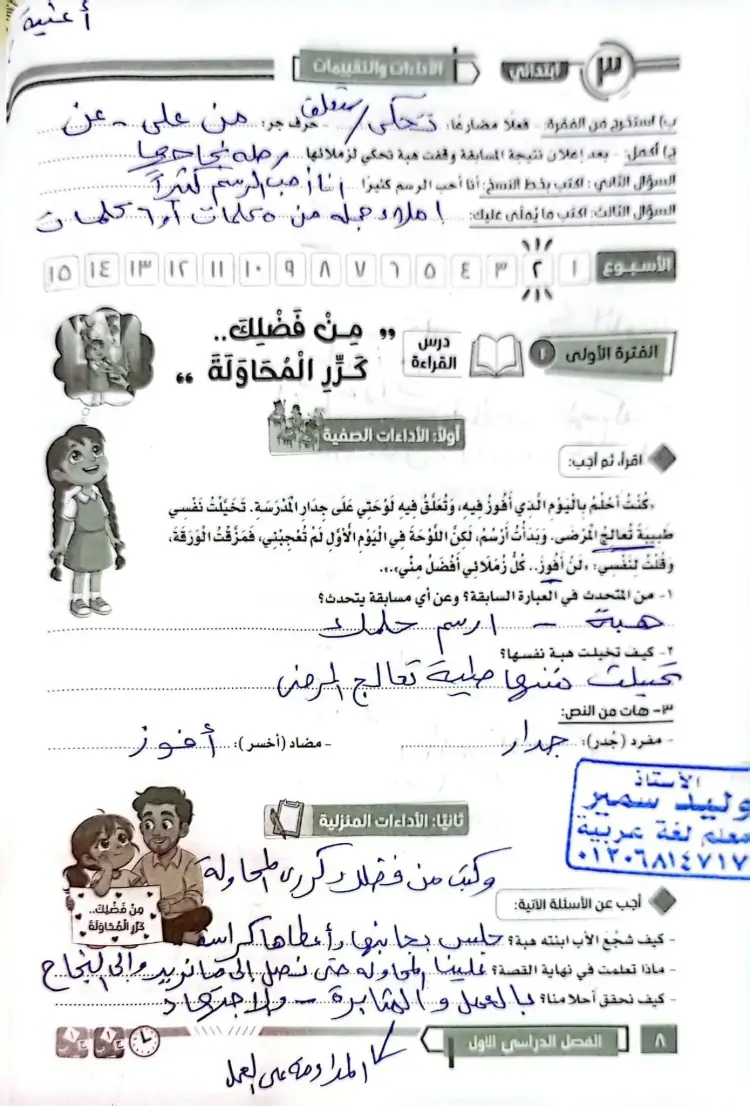 أغنية
٣ ابتدائي الأداءات والتقييمات
ب) استخرج من الفقرة: - فعلًا مضارعًا: تحكي / ستعلق - حرف جر: من على - عن
ج) أكمل: - بعد إعلان نتيجة المسابقة وقفت هبة تحكي لزملائها رحلة نجاحها
السؤال الثاني: اكتب بخط النسخ: أنا أحب الرسم كثيرًا أنا أحب الرسم كثيرًا
السؤال الثالث: اكتب ما يُملى عليك: املاء جملة من ٥ كلمات أو ٦ كلمات
الأسبوع ١ ٢ ٣ ٤ ٥ ٦ ٧ ٨ ٩ ١٠ ١١ ١٢ ١٣ ١٤ ١٥
الفترة الأولى ١ درس القراءة
" مِنْ فَضْلِكَ..
كَرِّرِ الْمُحَاوَلَةَ "
أولًا: الأداءات الصفية
اقرأ، ثم أجب:
«كُنْتُ أَحْلُمُ بِالْيَوْمِ الَّذِي أَفُوزُ فِيهِ، وَتُعَلَّقُ فِيهِ لَوْحَتِي عَلَى جِدَارِ الْمَدْرَسَةِ. تَخَيَّلْتُ نَفْسِي
طَبِيبَةً تُعَالِجُ الْمَرْضَى. وَبَدَأْتُ أَرْسُمُ، لَكِنَّ اللَّوْحَةَ فِي الْيَوْمِ الْأَوَّلِ لَمْ تُعْجِبْنِي، فَمَزَّقْتُ الْوَرَقَةَ،
وَقُلْتُ لِنَفْسِي: «لَنْ أَفُوزَ.. كُلُّ زُمَلَائِي أَفْضَلُ مِنِّي».».
١- من المتحدث في العبارة السابقة؟ وعن أي مسابقة يتحدث؟
هبة - ارسم حلمك
٢- كيف تخيلت هبة نفسها؟
تخيلت نفسها طبيبة تعالج المرضى
٣- هات من النص:
- مفرد (جُدر): جدار - مضاد (أخسر): أفوز
الأستاذ
وليد سمير
معلم لغة عربية
٠١٢٠٦٨١٤٧١٧
ثانيًا: الأداءات المنزلية
وكتب من فضلك كرري المحاولة
مِنْ فَضْلِكَ..
كَرِّرِ الْمُحَاوَلَةَ
أجب عن الأسئلة الآتية:
- كيف شجع الأب ابنته هبة؟ جلس بجانبها وأعطاها كراسة
- ماذا تعلمت في نهاية القصة؟ علينا المحاولة حتى نصل إلى ما نريد وإلى النجاح
- كيف نحقق أحلامنا؟ بالعمل والمثابرة - والاجتهاد
٨ الفصل الدراسي الأول
المداومة على العمل